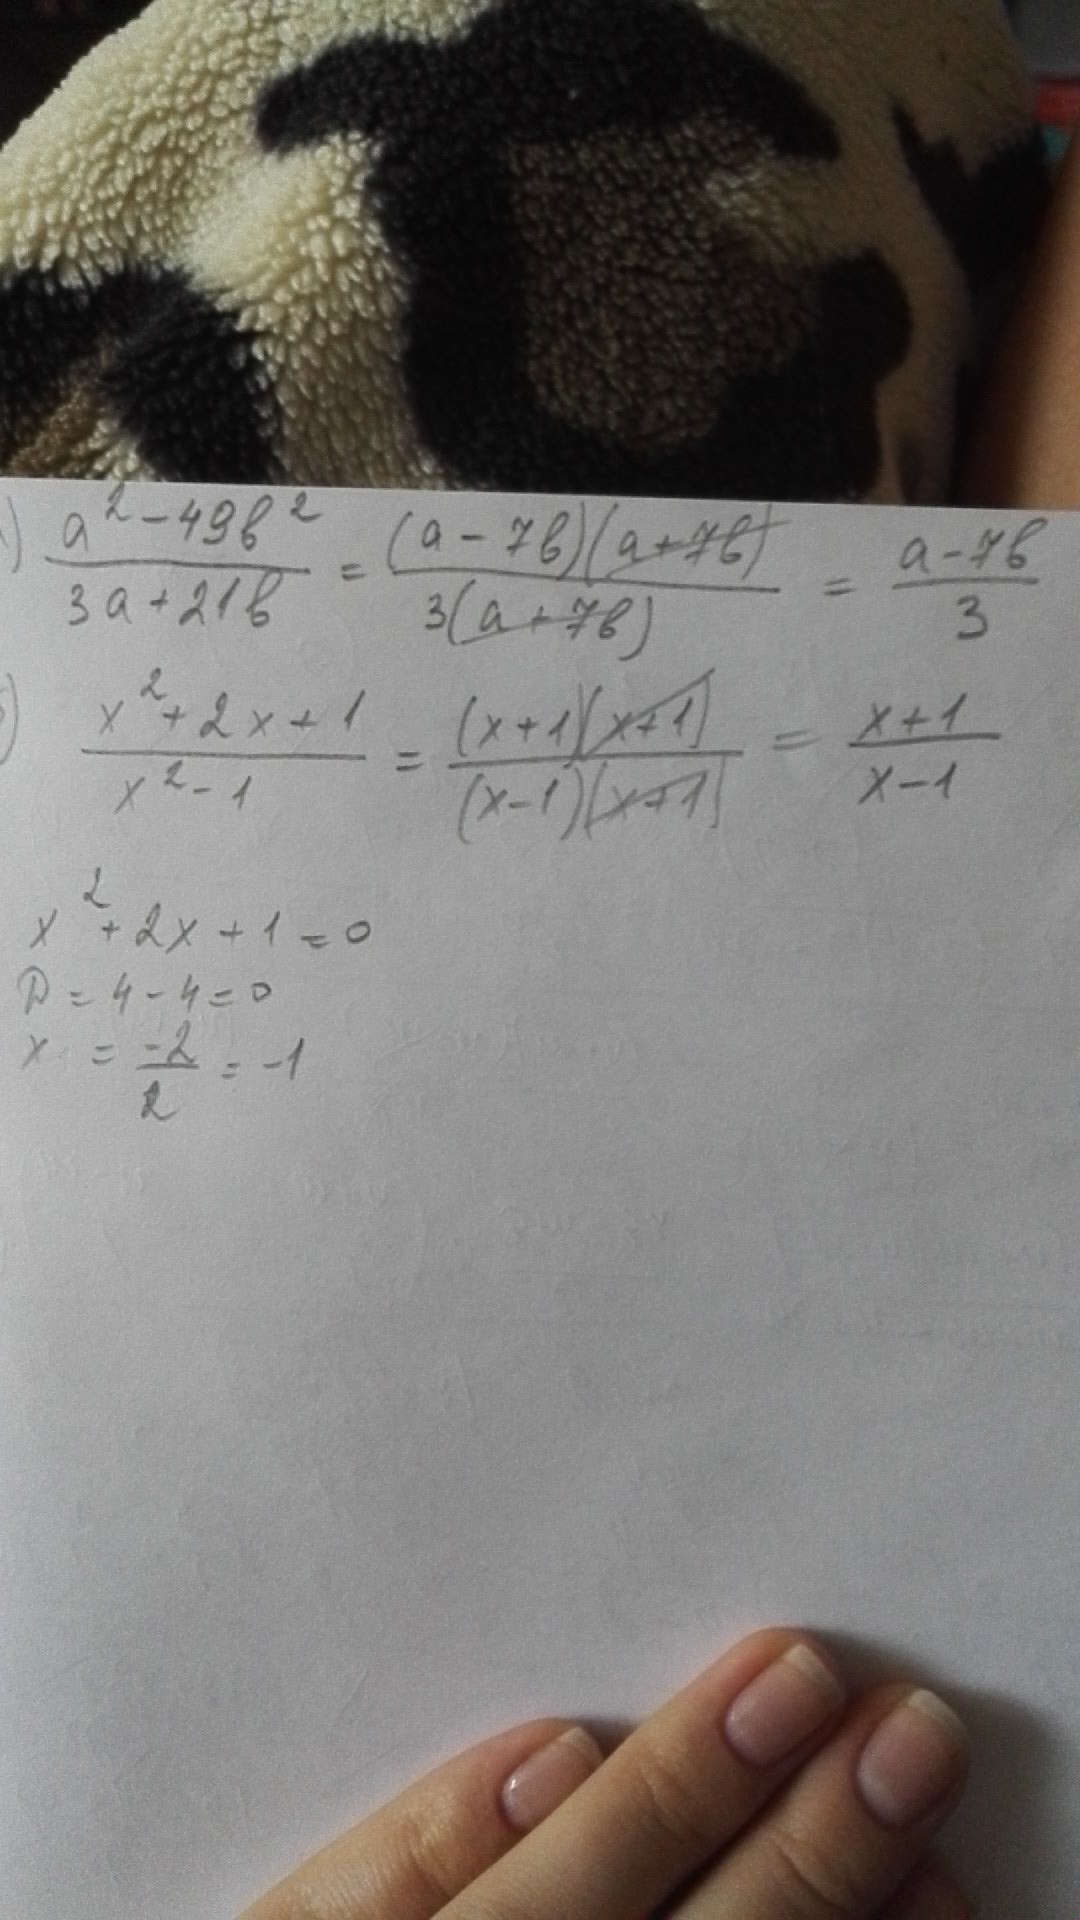 ) a²-49в² / 3a+21в = (a-7в)(a+7в) / 3(a+7в) = a-7в / 3
) x²+2x+1 / x²-1 = (x+1)(x+1) / (x-1)(x+1) = x+1 / x-1
x²+2x+1=0
D=4-4=0
x = -2 / 2 = -1